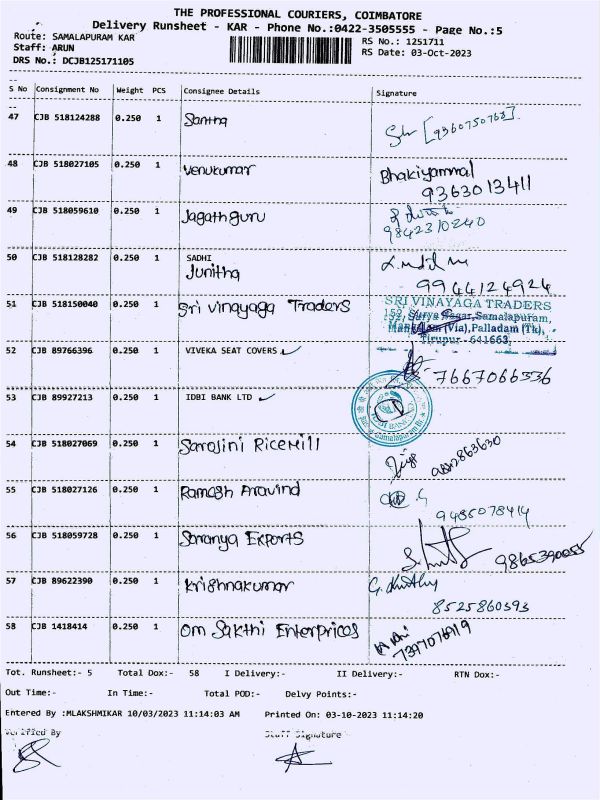 THE PROFESSIONAL COURIERS, COIMBATORE
Delivery Runsheet - KAR - Phone No.:0422-3505555 - Page No.:5
Route: SAMALAPURAM KAR
RS No.: 1251711
Staff: ARUN
RS Date: 03-Oct-2023
DRS No.: DCJB125171105
S No Consignment No Weight PCS Consignee Details Signature
47 CJB 518124288 0.250 1 Santha [9360750763].
48 CJB 518027105 0.250 1 Venukumar Bhakiyammal
9363013411
49 CJB 518059610 0.250 1 Jagathguru
9842310240
50 CJB 518128282 0.250 1 SADHI
Junitha
9944124924
51 CJB 518150040 0.250 1 Sri Vinayaga Traders SRI VINAYAGA TRADERS
152, Surya Nagar, Samalapuram,
Mangalam (Via), Palladam (Tk),
Tirupur - 641663.
52 CJB 89766396 0.250 1 VIVEKA SEAT COVERS
7667066336
53 CJB 89927213 0.250 1 IDBI BANK LTD
54 CJB 518027069 0.250 1 Sarojini RiceMill
55 CJB 518027126 0.250 1 Ramesh Aravind
9485078414
56 CJB 518059728 0.250 1 Saranya Exports
9865390055
57 CJB 89622390 0.250 1 Krishnakumar
8525860393
58 CJB 1418414 0.250 1 Om Sakthi Enterprices
Tot. Runsheet:- 5 Total Dox:- 58 I Delivery:- II Delivery:- RTN Dox:-
Out Time:- In Time:- Total POD:- Delvy Points:-
Entered By :MLAKSHMIKAR 10/03/2023 11:14:03 AM Printed On: 03-10-2023 11:14:20
Verified By Staff Signature